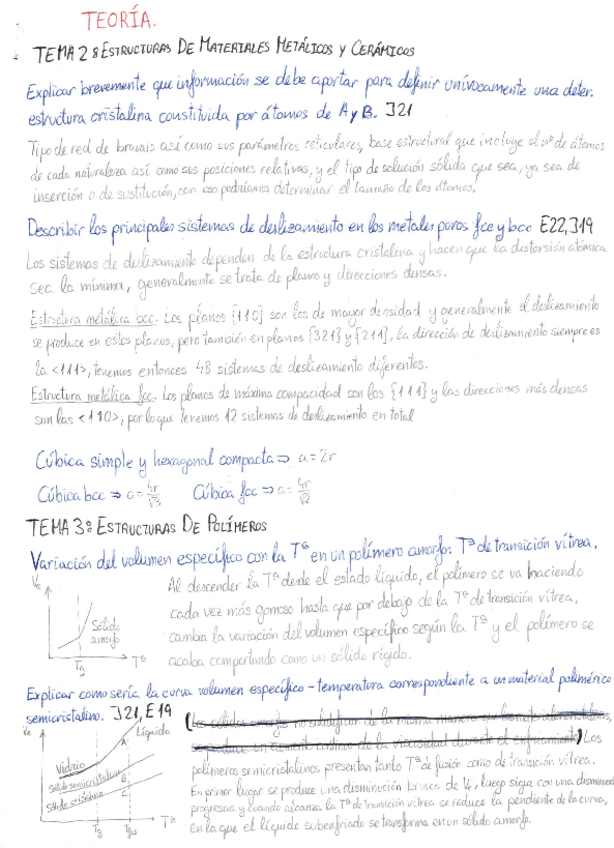 TEORÍA.
TEMA 2: ESTRUCTURAS DE MATERIALES METÁLICOS Y CERÁMICOS
Explicar brevemente que información se debe aportar para definir unívocamente una deter.
estructura cristalina constituida por átomos de A y B. J21
Tipo de red de bravais así como sus parámetros reticulares, base estructural que incluye el nº de átomos
de cada naturaleza así como sus posiciones relativas, y el tipo de solución sólida que sea, ya sea de
inserción o de sustitución, con eso podríamos determinar el tamaño de los átomos.
Describir los principales sistemas de deslizamiento en los metales puros fcc y bcc E22, J19
Los sistemas de deslizamiento dependen de la estructura cristalina y hacen que la distorsión atómica
sea la mínima, generalmente se trata de planos y direcciones densas.
Estructura metálica bcc. Los planos {110} son los de mayor densidad y generalmente el deslizamiento
se produce en estos planos, pero también en planos {321} y {211}, la dirección de deslizamiento siempre es
la <111>, tenemos entonces 48 sistemas de deslizamiento diferentes.
Estructura metálica fcc. Los planos de máxima compacidad son los {111} y las direcciones más densas
son las <110>, por lo que tenemos 12 sistemas de deslizamiento en total
Cúbica simple y hexagonal compacta ⇒ a=2r
Cúbica bcc ⇒ a=4r/√3 Cúbica fcc ⇒ a=4r/√2
TEMA 3: ESTRUCTURAS DE POLÍMEROS
Variación del volumen específico con la Tª en un polímero amorfo: Tª de transición vítrea.
Ve
Sólido
amorfo
Tg
Tª
Al descender la Tª desde el estado líquido, el polímero se va haciendo
cada vez más gomoso hasta que por debajo de la Tª de transición vítrea,
cambia la variación del volumen específico según la Tª y el polímero se
acaba comportando como un sólido rígido.
Explicar como sería la curva volumen específico - temperatura correspondiente a un material polimérico
semicristalino. J21, E19
Ve
Líquido
A
Vidrio
Sólido semicristalino
B
Sólido cristalino
C
Tg
Tfus
Tª
Los
polímeros semicristalinos presentan tanto Tª de fusión como de transición vítrea.
En primer lugar se produce una disminución brusca de Ve, luego sigue con una disminución
progresiva y cuando alcanza la Tª de transición vítrea se reduce la pendiente de la curva,
en la que el líquido subenfriado se transforma en un sólido amorfo.